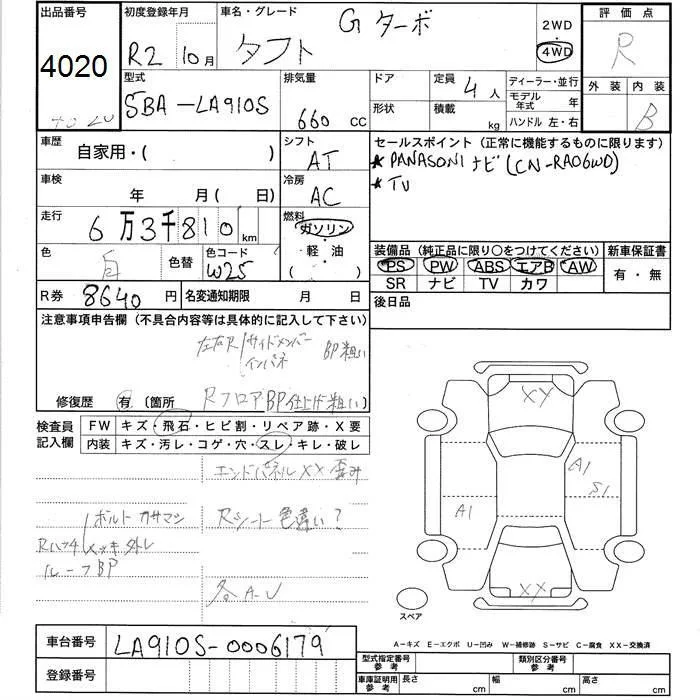 出品番号 初度登録年月 車名・グレード 評価点
4020 R2 10月 タフト Gターボ 2WD 4WD R
外装 内装
B
型式 排気量 ドア 定員 4人 ディーラー・並行
5BA-LA910S 660 CC 形状 積載 kg モデル年式 年
ハンドル 左・右
車歴 自家用・( ) シフト AT セールスポイント(正常に機能するものに限ります)
* PANASONI ナビ(CN-RA06WD)
* TV
車検 年 月( 日) 冷房 AC
走行 6万3千810km 燃料 ガソリン・軽油( )
色 白 色替 色コード W25
装備品(純正品に限り○をつけてください) 新車保証書
PS PW ABS エアB AW 有・無
SR ナビ TV カワ
R券 8640円 名変通知期限 月 日 後日品
注意事項申告欄(不具合内容等は具体的に記入して下さい)
左右R サイドメンバー BP粗い
インパネ
修復歴 有 〔箇所 RフロアBP仕上げ粗い〕
検査員記入欄 FW キズ・飛石・ヒビ割・リペア跡・X要
内装 キズ・汚レ・コゲ・穴・スレ・キレ・破レ
エンドパネルXX 歪み
ボルトカサマシ Rシート色違い?
Rハッチ メッキ外レ
ルーフBP
各A-U
XY
A1
S1
A1
XX
スペア
車台番号 LA910S-0006179
A-キズ E-エクボ U-凹み W-補修跡 S-サビ C-腐食 XX-交換済
登録番号 型式指定番号 参考 類別区分番号 参考
車庫証明用 参考 長さ cm 幅 cm 高さ cm